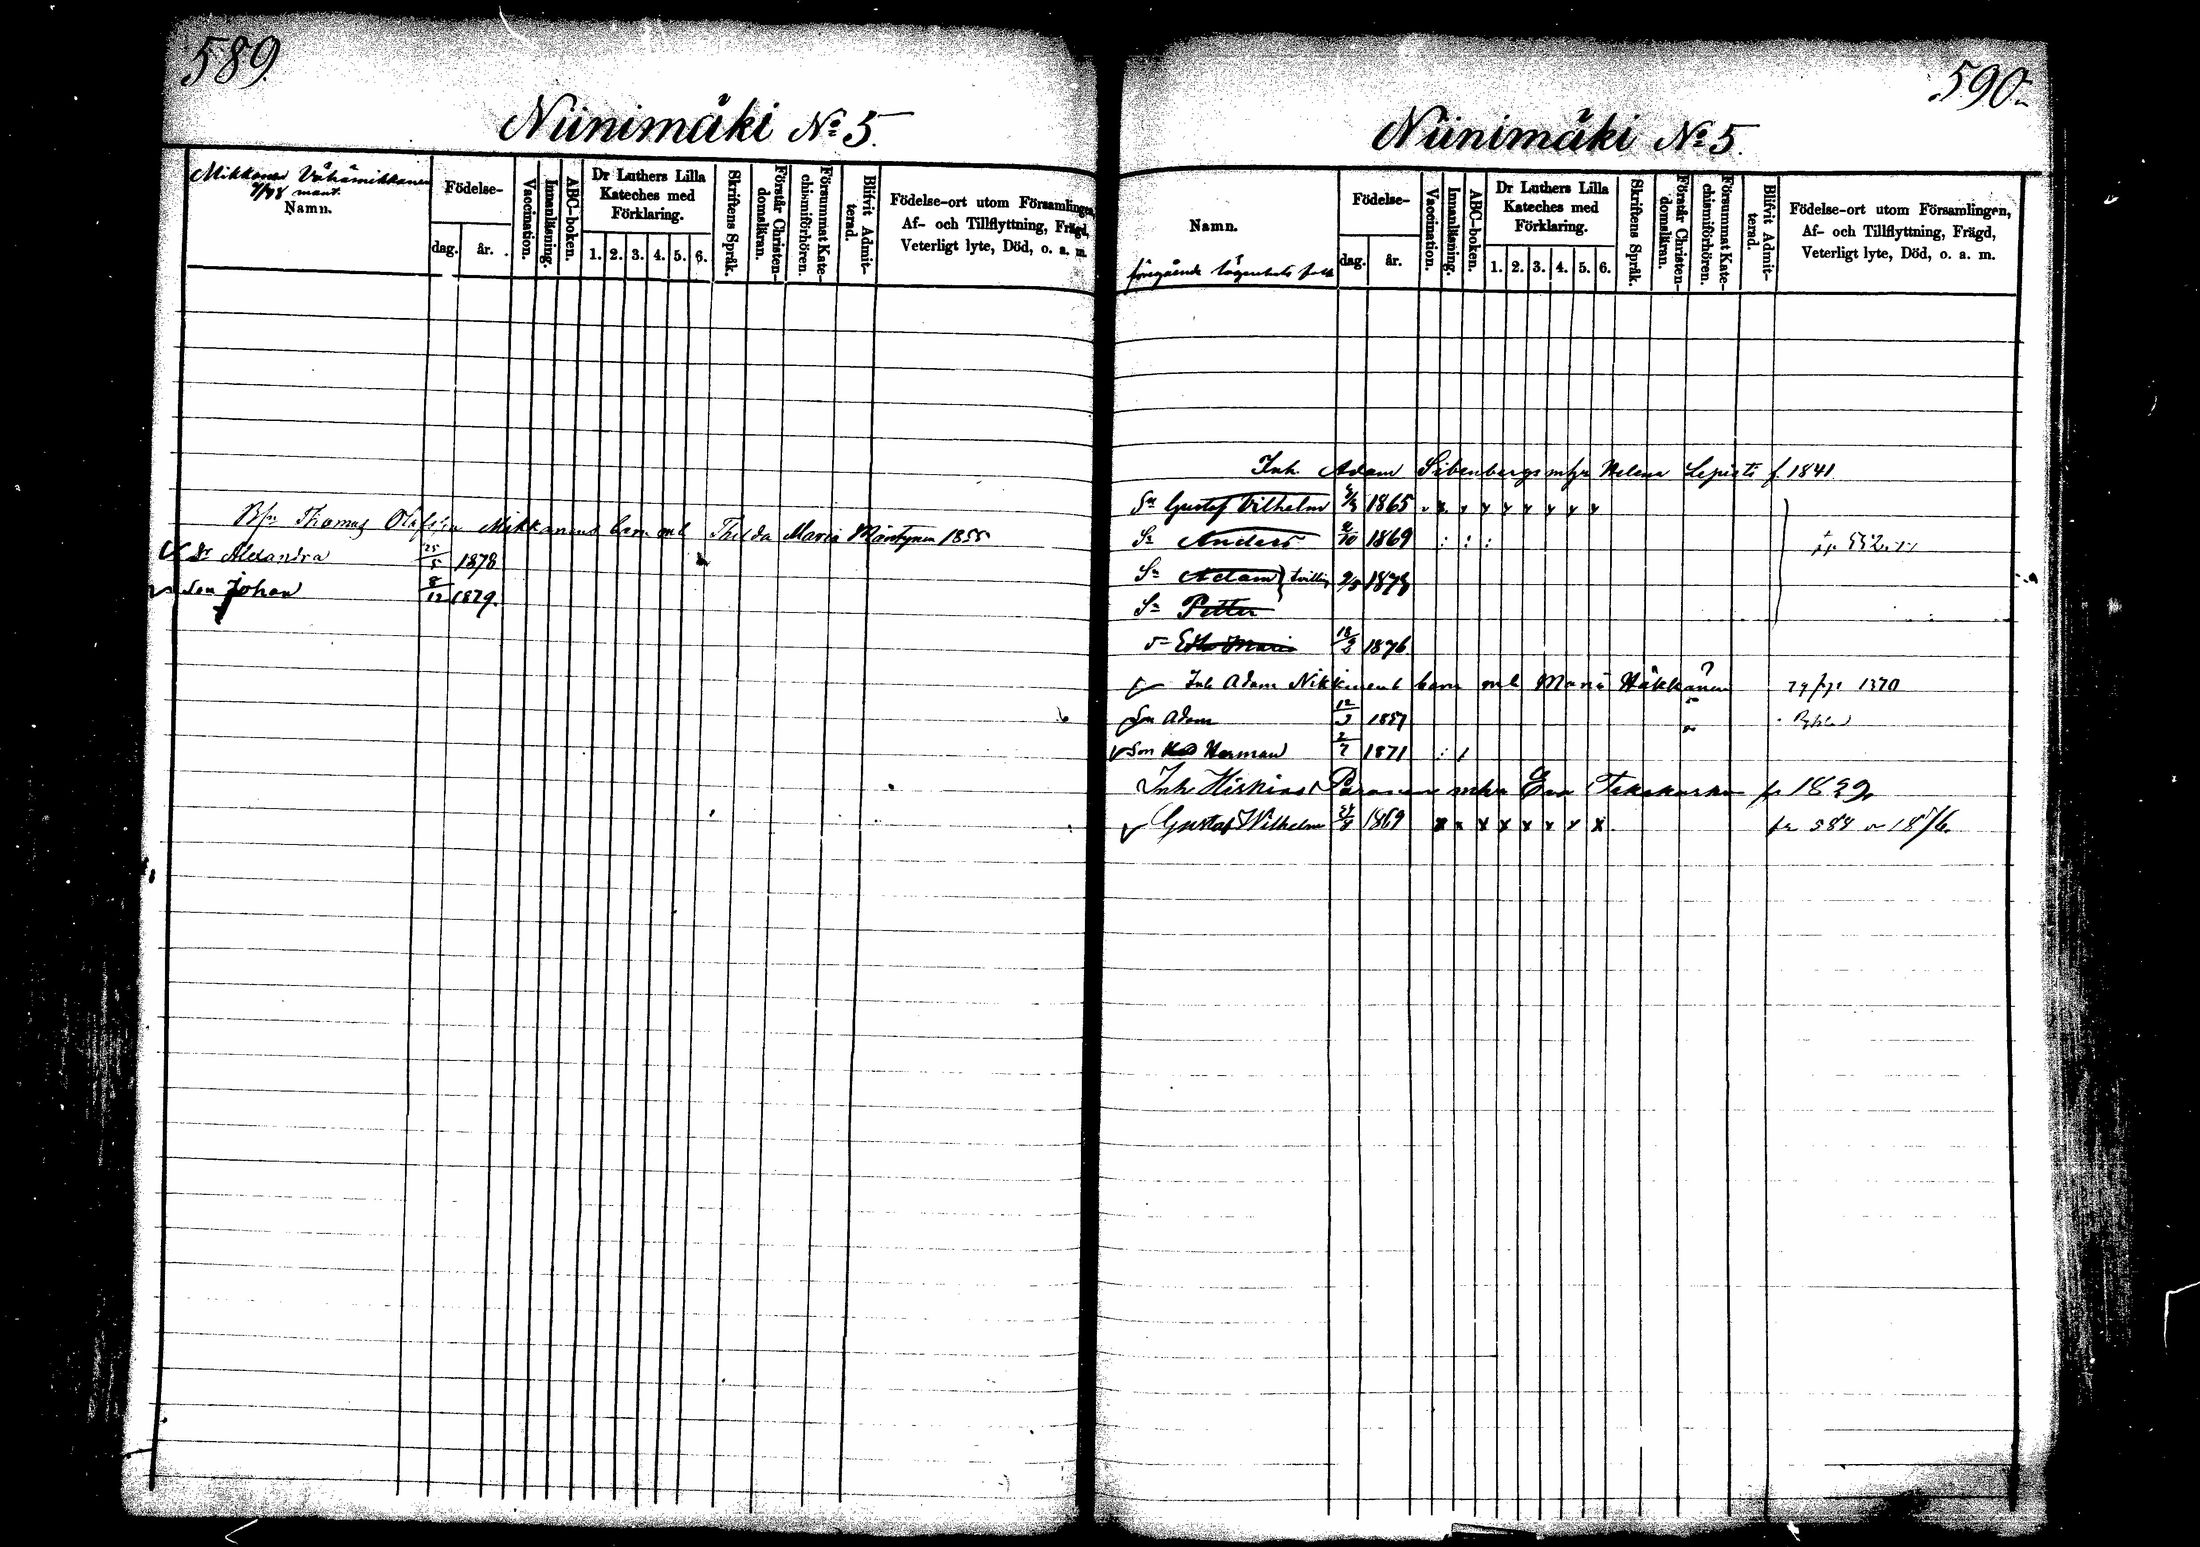 589
Niinimäki No 5.
Mikkanen Vähämikkanen
mant.
Namn.
Födelse-
dag. år.
Vaccination.
Innanläsning.
ABC-boken.
Dr Luthers Lilla
Kateches med
Förklaring.
1. 2. 3. 4. 5. 6.
Skriftens Språk.
Förstår Christen-
domsläran.
Försummat Kate-
chismiförhören.
Blifvit Admit-
terad.
Födelse-ort utom Församlingen,
Af- och Tillflyttning, Frägd,
Veterligt lyte, Död, o. a. m.
Thomas Olofsson Mikkanens barn mh Thilda Maria Mäntynen 1855
Dr Alexandra 25/5 1878
Son Johan 8/12 1879.
590
Niinimäki No 5.
Namn.
föregående lägenhets folk
Födelse-
dag. år.
Vaccination.
Innanläsning.
ABC-boken.
Dr Luthers Lilla
Kateches med
Förklaring.
1. 2. 3. 4. 5. 6.
Skriftens Språk.
Förstår Christen-
domsläran.
Försummat Kate-
chismiförhören.
Blifvit Admit-
terad.
Födelse-ort utom Församlingen,
Af- och Tillflyttning, Frägd,
Veterligt lyte, Död, o. a. m.
Inh. Adam Sibenbergs mhr Helena Lepistö f 1841
Sn Gustaf Vilhelm 1865 x x x x x x x x
Sn Anders 2/10 1869
Sn Adam } tvilling
Sn Petter
18/2 1876
Inh Adam Nikkinens barn mh Maria Häkkänen ?
Son Adam 12/3
Son Herman 2/7 1871
Inh Hiskias Paronen mhr Eva
Gustaf Wilhelm 1869 x x x x x x x x